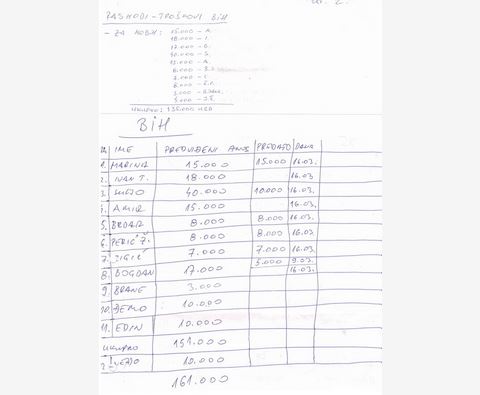 RASHODI - TROŠKOVI BiH
- ZA MOBH: 15.000 - A.
18.000 - I.
17.000 - B.
40.000 - S.
15.000 - A.
8.000
7.000 - C.
8.000
3.000
5.000
UKUPNO: 135.000 USD
BiH
IME PREDVIĐENI AVNS PREDATO DANA
1. MARINA 15.000 15.000 16.03.
2. IVAN T. 18.000 16.03
3. SULJO 40.000 10.000 16.03.
4. AMIR 15.000 16.03.
5. BRDAR 8.000 8.000 16.03.
6. PERIĆ Ž. 8.000 8.000 16.03
7. 7.000 7.000 16.03.
5.000 9.03.
8. BOGDAN 17.000 16.03.
9. BRANE 3.000
10. DEMO 10.000
11. EDIN 10.000
UKUPNO 151.000
10.000
161.000